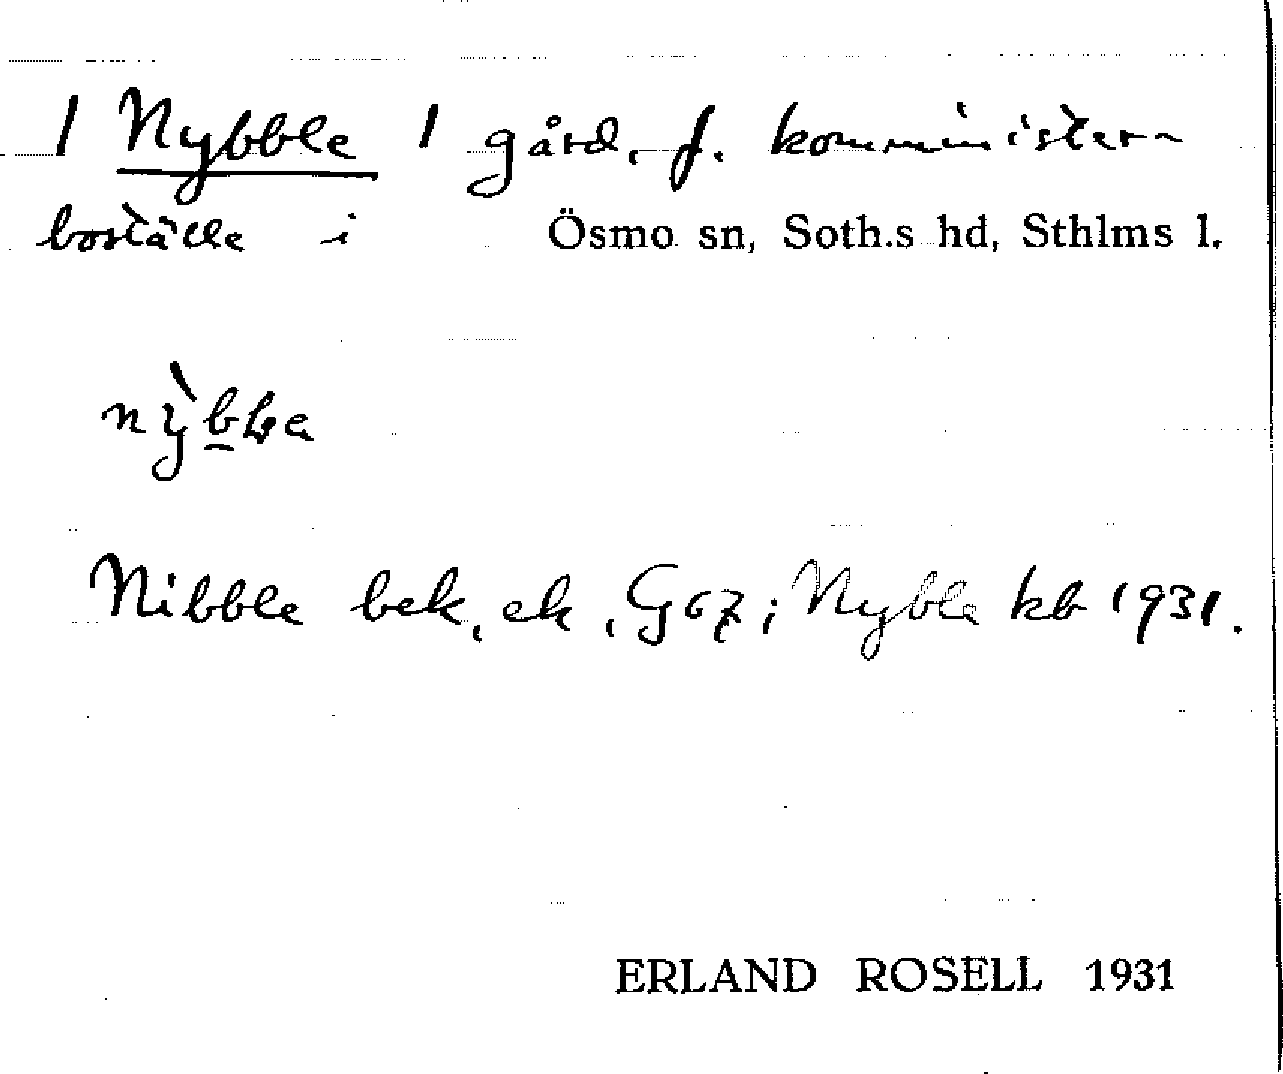 / Nybble / gård, f. komminister-
boställe i Ösmo sn, Soth.s hd, Sthlms l.
Nibble bek, ek, Goz; Nyble kb 1931.
ERLAND ROSELL 1931